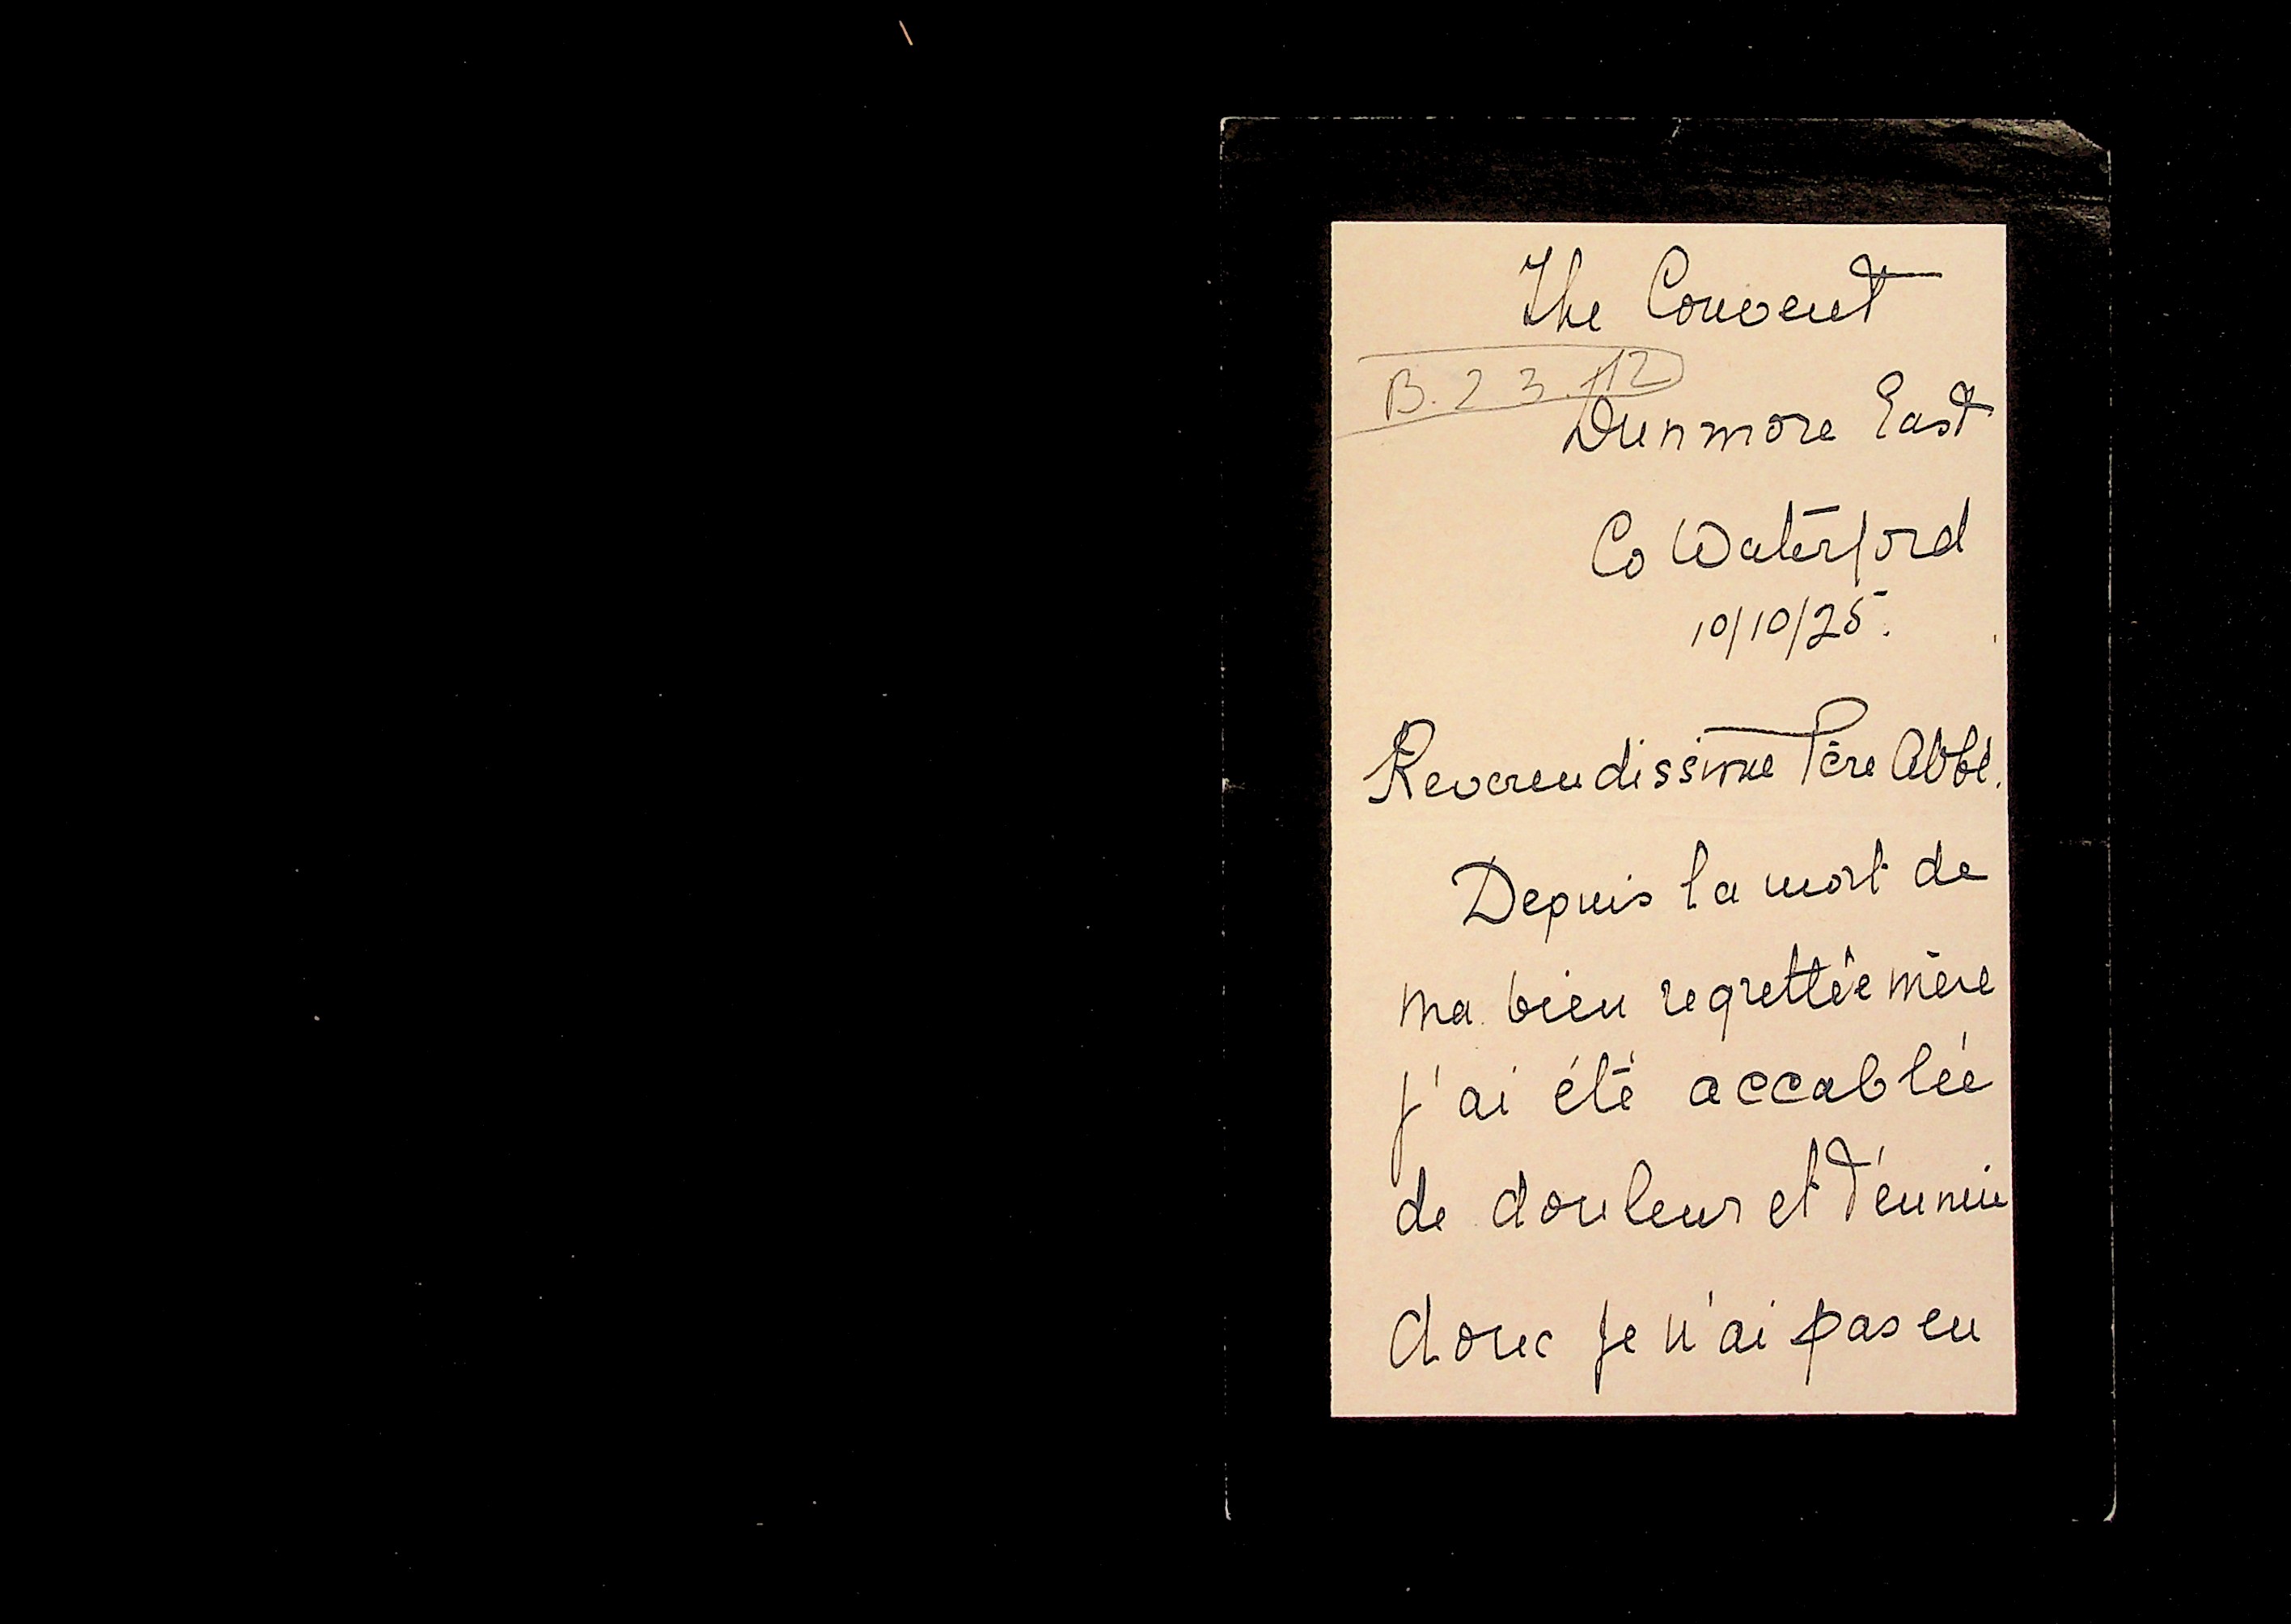 The Convent
B.23.112
Dunmore East
Co Waterford
10/10/25.
Reverendissime Père Abbé.
Depuis la mort de
ma bien regrettée mère
j'ai été accablée
de douleur et d'ennui
donc je n'ai pas eu